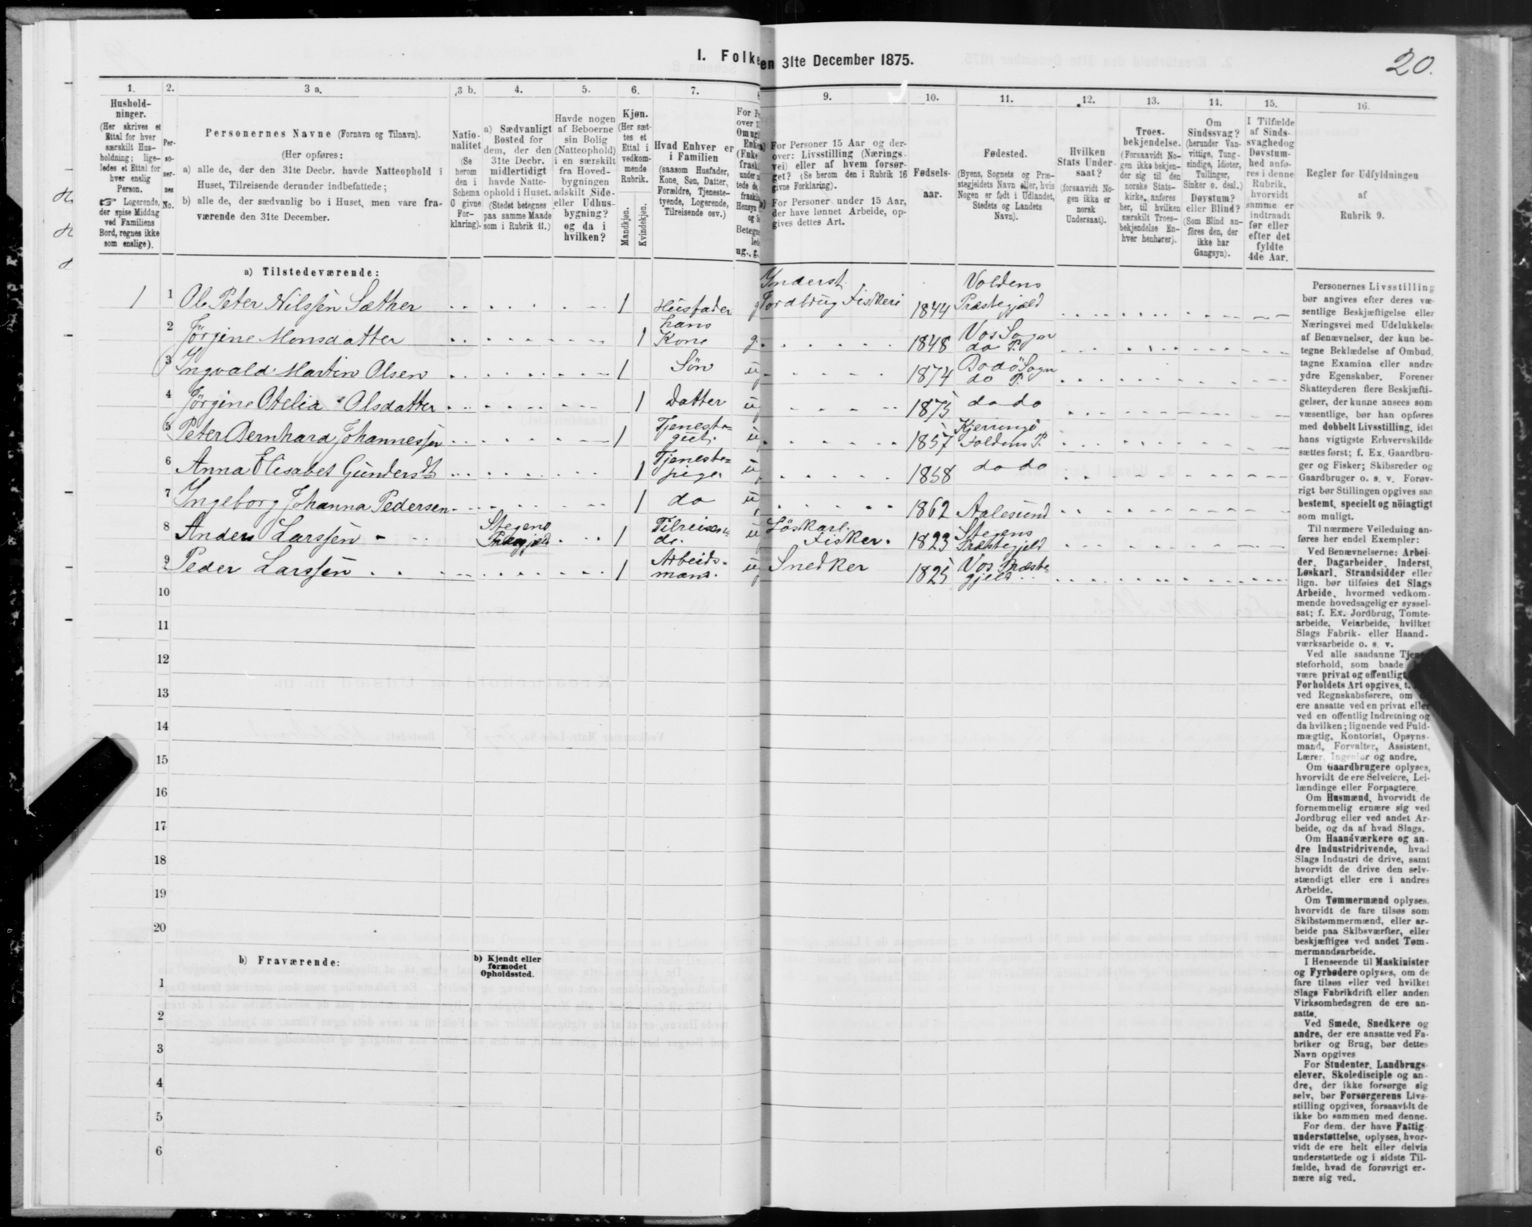 20.
I. Folke
en 31te December 1875.
1. 2. 3 a. 3 b. 4. 5. 6. 7. 9. 10. 11. 12. 13. 14. 15. 16.
Hushold-
ninger.
(Her skrives et
Ettal for hver
særskilt Hus-
holdning; lige-
ledes et Ettal for
hver enslig
Person.
☞ Logerende,
der spise Middag
ved Familiens
Bord, regnes ikke
som enslige).
Per-
so-
ner-
nes
No.
Personernes Navne (Fornavn og Tilnavn).
(Her opføres:
a) alle de, der den 31te Decbr. havde Natteophold i
Huset, Tilreisende derunder indbefattede;
b) alle de, der sædvanlig bo i Huset, men vare fra-
værende den 31te December.
Natio-
nalitet
(Se
herom
den i
Schema
6 givne
For-
klaring).
a) Sædvanligt
Bosted for
dem, der den
31te Decbr.
midlertidigt
havde Natte-
ophold i Huset.
(Stedet betegnes
paa samme Maade
som i Rubrik 11.)
Havde nogen
af Beboerne
sin Bolig
(Natteophold)
i en særskilt
fra Hoved-
bygningen
adskilt Side-
eller Udhus-
bygning?
og da i
hvilken?
Kjøn.
(Her sæt-
tes et
Ettal i
vedkom-
mende
Rubrik.
Mandkjøn.
Kvindekjøn.
Hvad Enhver er
i Familien
(saasom Husfader,
Kone, Søn, Datter,
Forældre, Tjeneste-
tyende, Logerende,
Tilreisende osv.)
For Personer 15 Aar og der-
over: Livsstilling (Nærings-
vei) eller af hvem forsør-
get? (Se herom den i Rubrik 16
givne Forklaring).
For Personer under 15 Aar,
der have lønnet Arbeide, op-
gives dettes Art.
Fødsels-
aar.
Fødested.
(Byens, Sognets og Præ-
stegjeldets Navn eller, hvis
Nogen er født i Udlandet,
Stedets og Landets
Navn).
Hvilken
Stats Under-
saat?
(forsaavidt No-
gen ikke er
norsk
Undersaat).
Troes-
bekjendelse.
(Forsaavidt No-
gen ikke bekjen-
der sig til den
norske Stats-
kirke, anføres
her, til hvilken
særskilt Troes-
bekjendelse En-
hver henhører).
Om
Sindssvag?
(herunder Van-
vittige, Tung-
sindige, Idioter,
Tullinger,
Sinker o. desl.)
Døvstum?
eller Blind?
(Som Blind an-
føres den, der
ikke har
Gangsyn).
I Tilfælde
af Sinds-
svaghed og
Døvstum-
hed anfø-
res i denne
Rubrik,
hvorvidt
samme er
indtraadt
før eller
efter det
fyldte
4de Aar.
Regler for Udfyldningen
af
Rubrik 9.
a) Tilstedeværende:
1 1 Ole Peter Nilssen Sæther 1 Husfader g Inderst Jordbrug Fiskeri 1844 Voldens Præstegjeld
2 Jørgine Monsdatter 1 hans Kone g 1848 Vos Sogn do P.
3 Ingvald Martin Olsen 1 Søn u 1874 Bodö Sogn do P.
4 Jørgine Otelia Olsdatter 1 Datter u 1875 do do
5 Peter Bernhard Johannessen 1 Tjeneste-gut u 1857 Kjerringö Foldens P.
6 Anna Elisabet Gundersdt 1 Tjeneste-pige u 1858 do do
7 Ingeborg Johanna Pedersen 1 do u 1862 Aalesund
8 Anders Larssen Stegens Præstegjeld 1 Tilreisen-de. u Löskarl Fisker. 1823 Stegens Præstegjeld
9 Peder Larssen 1 Arbeids-mand. u Snedker 1825 Vos Præste-gjeld
10
11
12
13
14
15
16
17
18
19
20
b) Fraværende:
b) Kjendt eller
formodet
Opholdssted.
1
2
3
4
5
6
Personernes Livsstilling
bør angives efter deres væ-
sentlige Beskjæftigelse eller
Næringsvei med Udelukkelse
af Benævnelser, der kun be-
tegne Beklædelse af Ombud,
tagne Examina eller andre
ydre Egenskaber. Forener
Skatteyderen flere Beskjæfti-
gelser, der kunne ansees som
væsentlige, bør han opføres
med dobbelt Livsstilling, idet
hans vigtigste Erhvervskilde
sættes først; f. Ex. Gaardbru-
ger og Fisker; Skibsreder og
Gaardbruger o. s. v. Forøv-
rigt bør Stillingen opgives saa
bestemt, specielt og nøiagtigt
som muligt.
Til nærmere Veiledning an-
føres her endel Exempler:
Ved Benævnelserne: Arbei-
der, Dagarbeider, Inderst,
Løskarl, Strandsidder eller
lign. bør tilføies det Slags
Arbeide, hvormed vedkom-
mende hovedsagelig er syssel-
sat; f. Ex. Jordbrug, Tomte-
arbeide, Veiarbeide, hvilket
Slags Fabrik- eller Haand-
værksarbeide o. s. v.
Ved alle saadanne Tjene-
steforhold, som baade
være privat og offentligt,
Forholdets Art opgives, t.
ved Regnskabsførere, om
ere ansatte ved en privat eller
ved en offentlig Indretning og
da hvilken; lignende ved Fuld-
mægtig, Kontorist, Opsyns-
mand, Forvalter, Assistent,
Lærer, Ingeniør og andre.
Om Gaardbrugere oplyses,
hvorvidt de ere Selveiere, Lei-
lændinge eller Forpagtere.
Om Husmænd, hvorvidt de
fornemmelig ernære sig ved
Jordbrug eller ved andet Ar-
beide, og da af hvad Slags.
Om Haandværkere og an-
dre Industridrivende, hvad
Slags Industri de drive, samt
hvorvidt de drive den selv-
stændigt eller ere i andres
Arbeide.
Om Tømmermænd oplyses,
hvorvidt de fare tilsøs som
Skibstømmermænd, eller ar-
beide paa Skibsværfter, eller
beskjæftiges ved andet Tøm-
mermandsarbeide.
I Henseende til Maskinister
og Fyrbødere oplyses, om de
fare tilsøs eller ved hvilket
Slags Fabrikdrift eller anden
Virksomhedsgren de ere an-
satte.
Ved Smede, Snedkere og
andre, der ere ansatte ved Fa-
briker og Brug, bør dettes
Navn opgives
For Studenter, Landbrugs-
elever, Skoledisciple og an-
dre, der ikke forsørge sig
selv, bør Forsørgerens Livs-
stilling opgives, forsaavidt de
ikke bo sammen med denne.
For dem, der have Fattig-
understøttelse, oplyses, hvor-
vidt de ere helt eller delvis
understøttede og i sidste Til-
fælde, hvad de forøvrigt er-
nære sig ved.